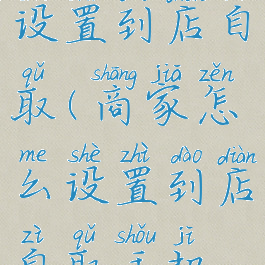 设置到店自
qǔ shāng jiā zěn
取(商家怎
me shè zhì dào diàn
么设置到店
zì qǔ shǒu jī
自取手机